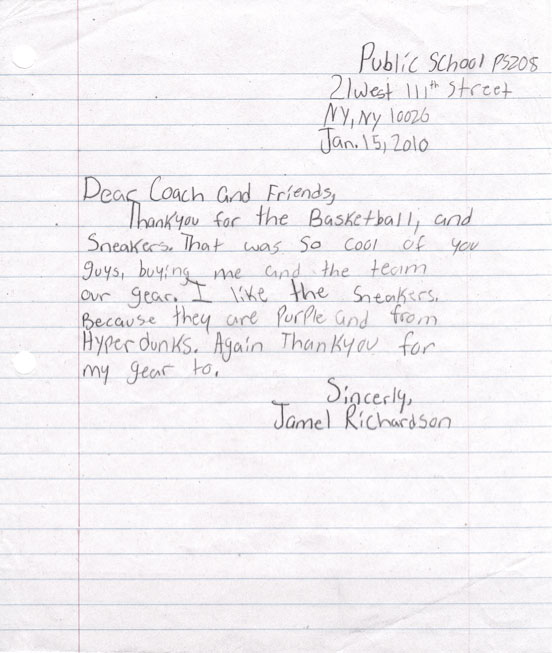 Public School PS208
21 West 111th Street
NY, NY 10026
Jan. 15, 2010
Dear Coach and Friends,
Thankyou for the Basketball, and
Sneakers. That was so cool of you
guys, buying me and the team
our gear. I like the Sneakers.
Because they are Purple and from
Hyperdunks. Again Thankyou for
my gear to.
Sincerly,
Jamel Richardson